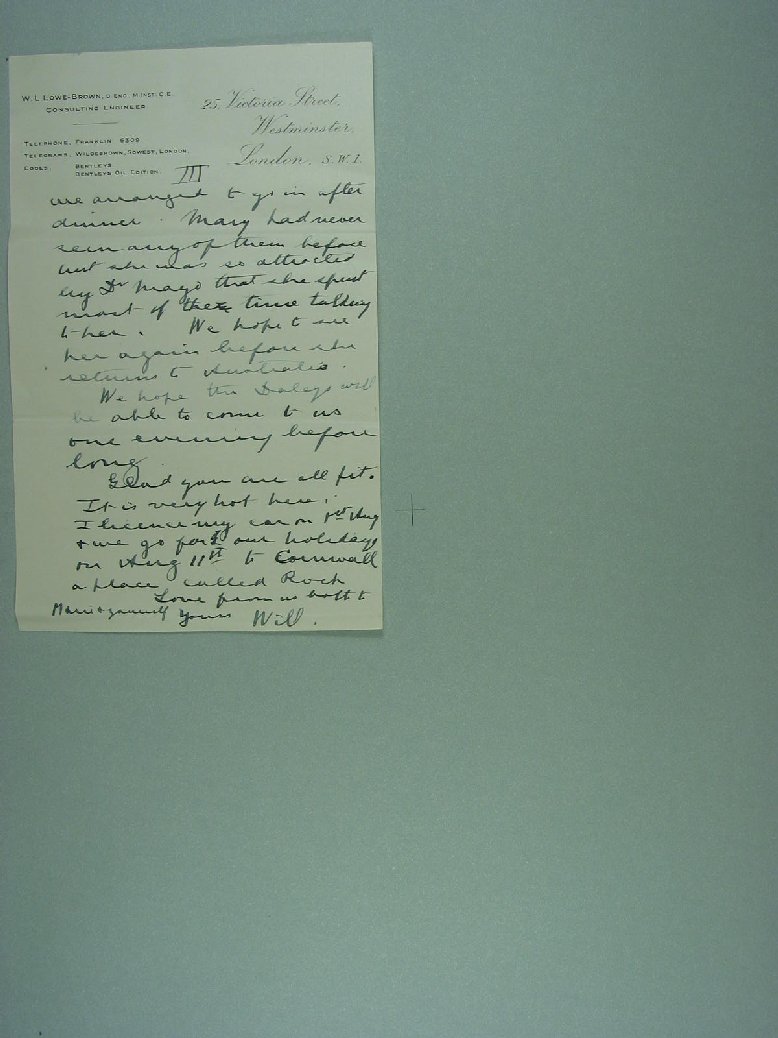 W. L. LOWE-BROWN, D.ENG. M.INST.C.E.
CONSULTING ENGINEER
TELEPHONE, FRANKLIN 6309
TELEGRAMS, WILDEBROWN, SOWEST, LONDON.
CODES, BENTLEYS
BENTLEYS OIL EDITION.
25, Victoria Street,
Westminster,
London, S.W.1.
III
we arranged to go in after
dinner. Mary had never
seen any of them before
but she was so attracted
by Dr Mayo that she spent
most of the time talking
to her. We hope to see
her again before she
returns to Australia.
We hope the Daleys will
be able to come to us
one evening before
long.
Glad you are all fit.
It is very hot here.
I licence my car on 1st Aug
& we go for our holidays
on Aug 11th to Cornwall
a place called Rock
Love from us both to
Marie & yourself Yours Will.